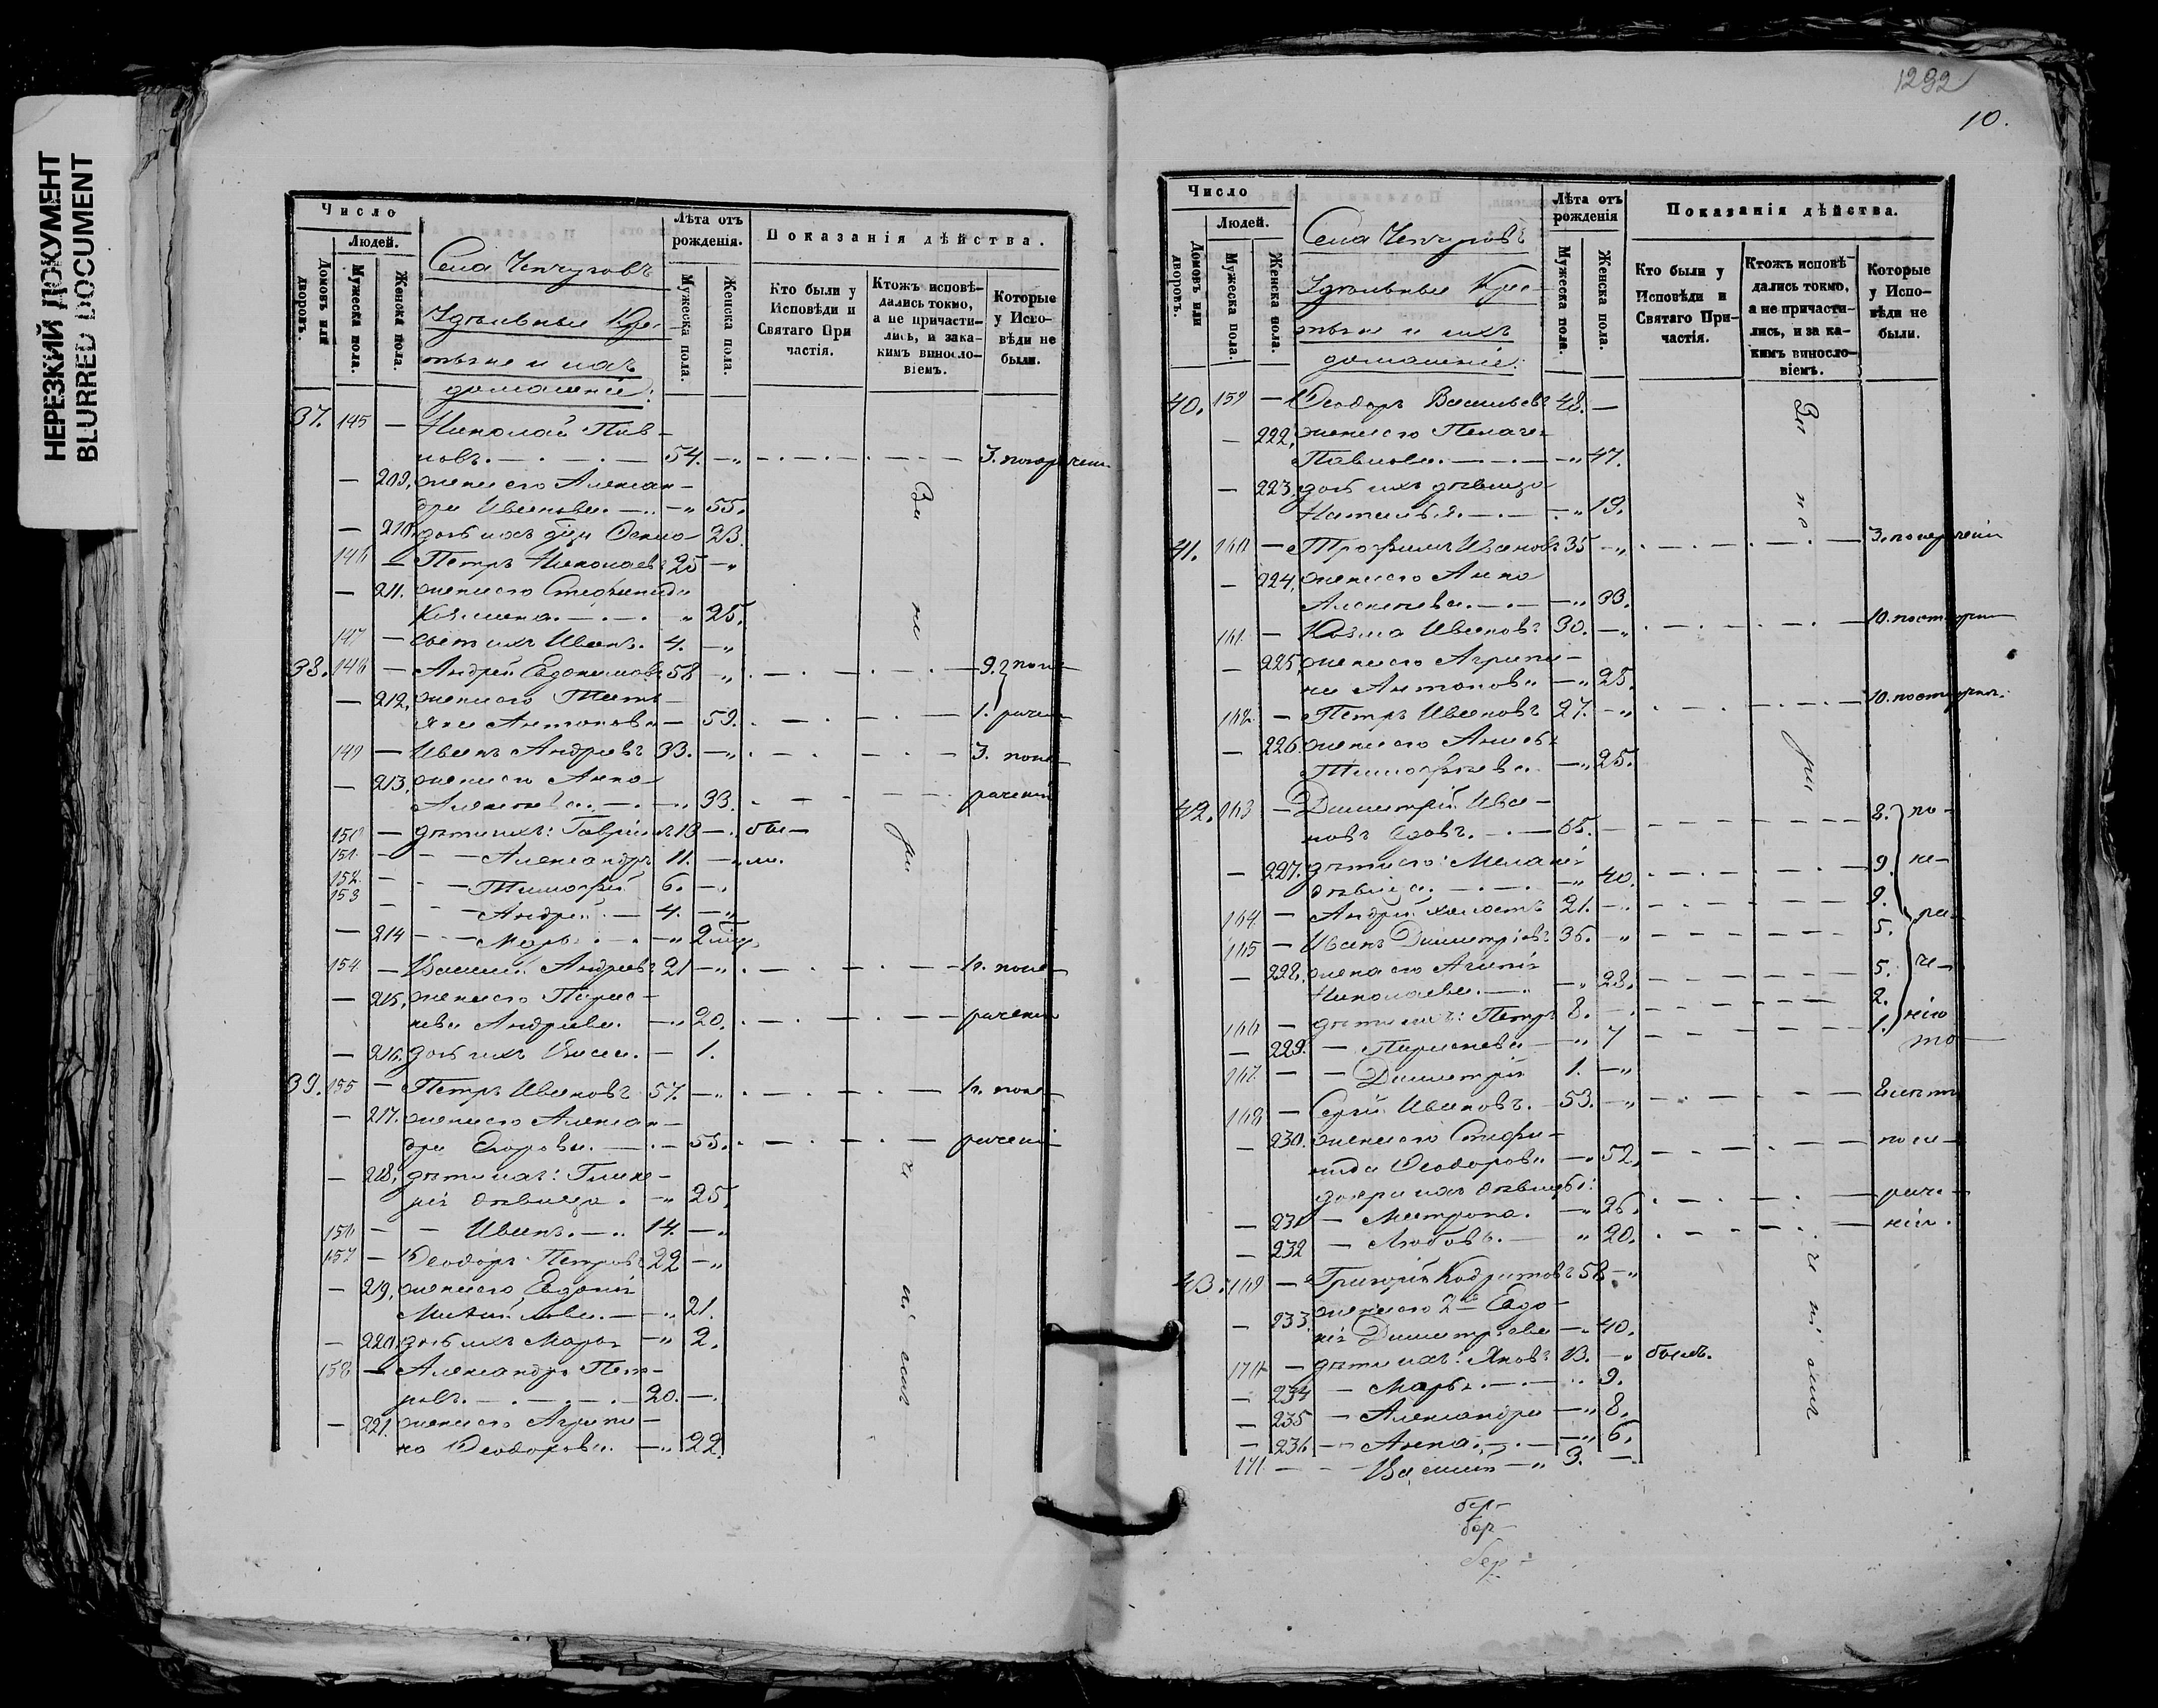 НЕРЕЗКИЙ ДОКУМЕНТ
BLURRED DOCUMENT
Число
Людей.
Домовъ или дворовъ.
Мужеска пола.
Женска пола.
Лѣта отъ рожденія.
Мужеска пола.
Женска пола.
Показанія дѣйства.
Кто были у Исповѣди и Святаго Причастія.
Ктожъ исповѣдались токмо, а не причастились, и за какимъ винословіемъ.
Которые у Исповѣди не были.
Села
Удѣльные Кре-
стьяне и ихъ
домашніе:
37. 145 — Николай Пав-
ловъ. 54. 3. понераченi
— 209. жена его Алексан-
дра Иванова. 55.
— 210. дочь ихъ 23.
146 — Петръ Николаевъ 25
— 211. жена его Стефанида
25.
147 — сынъ ихъ Иванъ. 4.
38. 148 — Андрей Евдокимовъ 58 9. } поне-
— 212. жена его Татья-
на Антонова 59. 1. } рачені
149 — Иванъ Андреевъ 33. 3. поне-
— 213. жена его Анна
Алексѣева. 33. рачені
150 — дѣти ихъ: Гавріилъ 13 бы-
151 — Александръ 11. ли.
152 — Тимофей 6.
153 — Андрей 4.
— 214 — Марья 2
154 — Василій Андреевъ 21 поне-
— 215. жена его Парас-
кева Андреева. 20. рачені
— 216. дочь ихъ 1.
39. 155 — Петръ Ивановъ 57. поне-
— 217. жена его Алексан-
дра Егорова. 55. рачені
— 218. дѣти ихъ: Глике-
рія дѣвица. 25.
156 — Иванъ. 14.
157 — Ѳеодоръ Петровъ 22
— 219. жена его Евдокія
Михайлова. 21.
— 220. дочь ихъ Марья 2.
158 — Александръ Пет-
ровъ. 20.
— 221. жена его Агрипи-
на Ѳеодорова. 22.
За
не
при
чи
ні
емъ
1292
10.
Число
Людей.
Домовъ или дворовъ.
Мужеска пола.
Женска пола.
Лѣта отъ рожденія
Мужеска пола.
Женска пола.
Показанія дѣйства.
Кто были у Исповѣди и Святаго Причастія.
Ктожъ исповѣдались токмо, а не причастились, и за какимъ винословіемъ.
Которые у Исповѣди не были.
Села
Удѣльные Кре-
стьяне и ихъ
домашніе:
40. 159 — Ѳеодоръ Васильевъ 48.
— 222. жена его Пелагея
Павлова. 47.
— 223. дочь ихъ дѣвица
Наталья. 19.
41. 160 — Трофимъ Ивановъ 35 3. понерачені
— 224. жена его Анна
Алексѣева. 33.
161 — Козма Ивановъ 30. 10.
— 225. жена его Агрипи-
на Антонова 25.
162 — Петръ Ивановъ 27. 10.
— 226. жена его Анисья
Тимофѣева 25.
42. 163 — Димитрій Ива-
новъ вдовъ. 65. 8. по-
— 227. дѣти его: Меланія
дѣвица. 40. 9. не-
164 — Андрей холостъ 21. 9. ра-
165 — Иванъ Димитріевъ 36. 5.
— 228. жена его Агапія
Николаева. 28. 5. че-
166 — дѣти ихъ: Петръ 8. 2. нію
— 229. — Параскева 7 1.
167 — Димитрій 1.
168 — Сергій Ивановъ. 53.
— 230. жена его Стефа-
нида Ѳеодорова 52. поне-
дочери ихъ дѣвицы:
— 231 — Матрона. 26. раче-
— 232 — Любовь. 20. нію.
43. 169 — Григорій Кодратовъ 58
— 233. жена его 2я Евдо-
кія Димитріева 40.
170 — дѣти ихъ: Яковъ 13. былъ.
— 234 — Марья 9.
— 235 — Александра 8.
— 236 — Анна. 6.
171 — Василій 3.
За
не
при
чи
ні
емъ
бер-
бер-
бер-